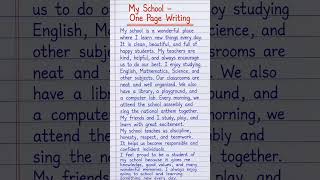 My School –
One Page Writing
My school is a wonderful place
where I learn new things every day.
It is clean, beautiful, and full of
happy students. My teachers are
kind, helpful, and always encourage
us to do our best. I enjoy studying
English, Mathematics, Science, and
other subjects. Our classrooms are
neat and well organized. We also
have a library, a playground, and
a computer lab. Every morning, we
attend the school assembly and
sing the national anthem together.
My friends and I study, play, and
learn with great excitement.
My school teaches us discipline,
honesty, respect, and teamwork.
It helps us become responsible and
confident individuals.
I feel proud to be a student of
my school because it gives me
knowledge, good values, and many
wonderful memories. I always enjoy
going to school and learning
something new every day.